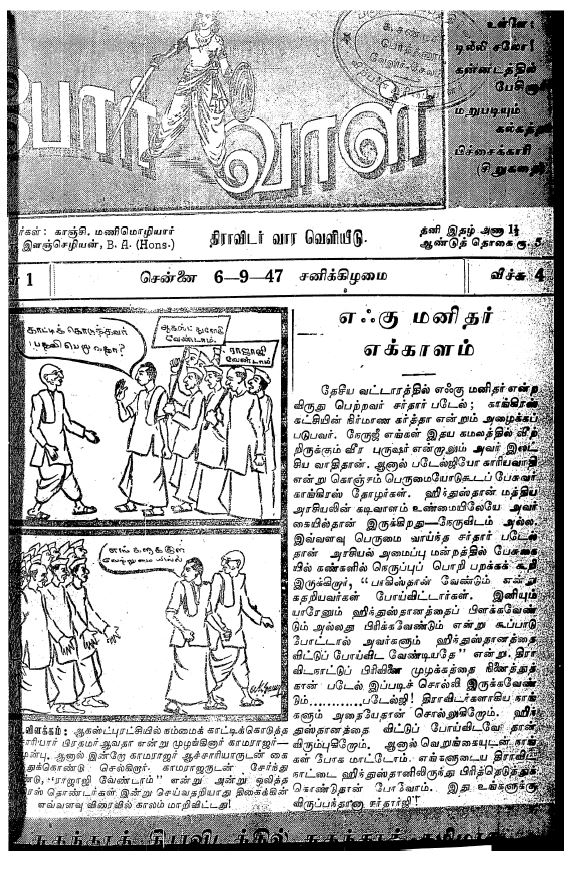 போர் வாள்
உள்ளே:
டில்லி சலோ!
கன்னடத்தில்
மறுபடியும்
பிச்சைக்காரி
(சிறுகதை)
காஞ்சி. மணிமொழியார்
இளஞ்செழியன், B. A. (Hons.)
திராவிடர் வார வெளியீடு.
தனி இதழ் அணா 1½
ஆண்டுத் தொகை ரூ. 5
1
சென்னை 6—9—47 சனிக்கிழமை
வீச்சு 4
காட்டிக் கொடுத்தவர்
பதவி பெறுவதா?
வேண்டாம்.
ராஜாஜி
வேண்டாம்
எங்களுக்குள்
வேற்றுமை யில்லை
விளக்கம்: ஆகஸ்ட்புரட்சியில் நம்மைக் காட்டிக்கொடுத்த
பிரதமர் ஆவதா என்று முழங்கினார் காமராஜர்—
ஆனால் இன்றோ காமராஜர் ஆச்சாரியாருடன் கை
செல்கிறார். காமராஜருடன் சேர்ந்து
"ராஜாஜி வேண்டாம்" என்று அன்று ஒலித்த
தொண்டர்கள் இன்று செய்வதறியாது திகைக்கின்
எவ்வளவு விரைவில் காலம் மாறிவிட்டது!
எஃகு மனிதர்
எக்காளம்
தேசிய வட்டாரத்தில் எஃகு மனிதர் என்ற
விருது பெற்றவர் சர்தார் படேல்; காங்கிரஸ்
கட்சியின் நிர்மாண கர்த்தா என்றும் அழைக்கப்
படுபவர். நேருஜீ எங்கள் இதய கமலத்தில் வீற்
றிருக்கும் வீர புருஷர் என்றாலும் அவர் இலட்
சிய வாதிதான். ஆனால் படேல்ஜியோ காரியவாதி
என்று கொஞ்சம் பெருமையோடுகூடப் பேசுவர்
காங்கிரஸ் தோழர்கள். ஹிந்துஸ்தான் மத்திய
அரசியலின் கடிவாளம் உண்மையிலேயே அவர்
கையில்தான் இருக்கிறது—நேருவிடம் அல்ல.
இவ்வளவு பெருமை வாய்ந்த சர்தார் படேல்
தான் அரசியல் அமைப்பு மன்றத்தில் பேசுகை
யில் கண்களில் நெருப்புப் பொறி பறக்கக் கூறி
இருக்கிறார், "பாகிஸ்தான் வேண்டும் என்று
கதறியவர்கள் போய்விட்டார்கள். இனியும்
யாரேனும் ஹிந்துஸ்தானத்தைப் பிளக்கவேண்
டும் அல்லது பிரிக்கவேண்டும் என்று கூப்பாடு
போட்டால் அவர்களும் ஹிந்துஸ்தானத்தை
விட்டுப் போய்விட வேண்டியதே" என்று. திரா
விடநாட்டுப் பிரிவினை முழக்கத்தை நினைத்துத்
தான் படேல் இப்படிச் சொல்லி இருக்கவேண்
டும்............படேல்ஜி! திராவிடர்களாகிய நாங்
களும் அதையேதான் சொல்லுகிறோம். ஹிந்
துஸ்தானத்தை விட்டுப் போய்விடவே தான்
விரும்புகிறோம். ஆனால் வெறுங்கையுடன் நாங்
கள் போக மாட்டோம். எங்களுடைய திராவிட
நாட்டை ஹிந்துஸ்தானிலிருந்து பிரித்தெடுத்துக்
கொண்டுதான் போவோம். இது உங்களுக்கு
விருப்பந்தானா சர்தார்ஜி!